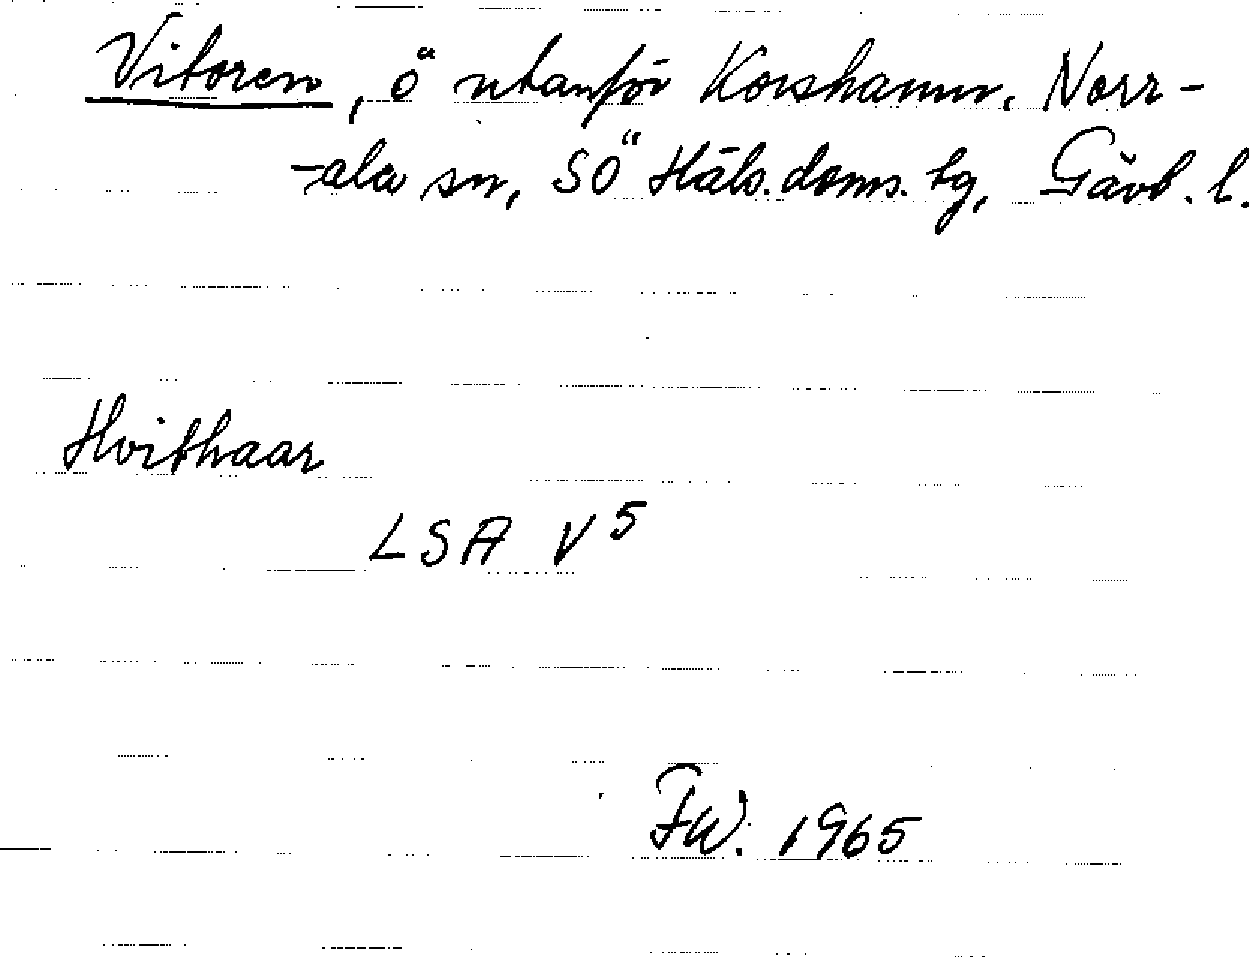 Vitoren, ö utanför Korshamn, Norr-
-ala sn, SÖ Häls. doms. tg, Gävl. l.
Hvithaar
LSA V 5
FW. 1965